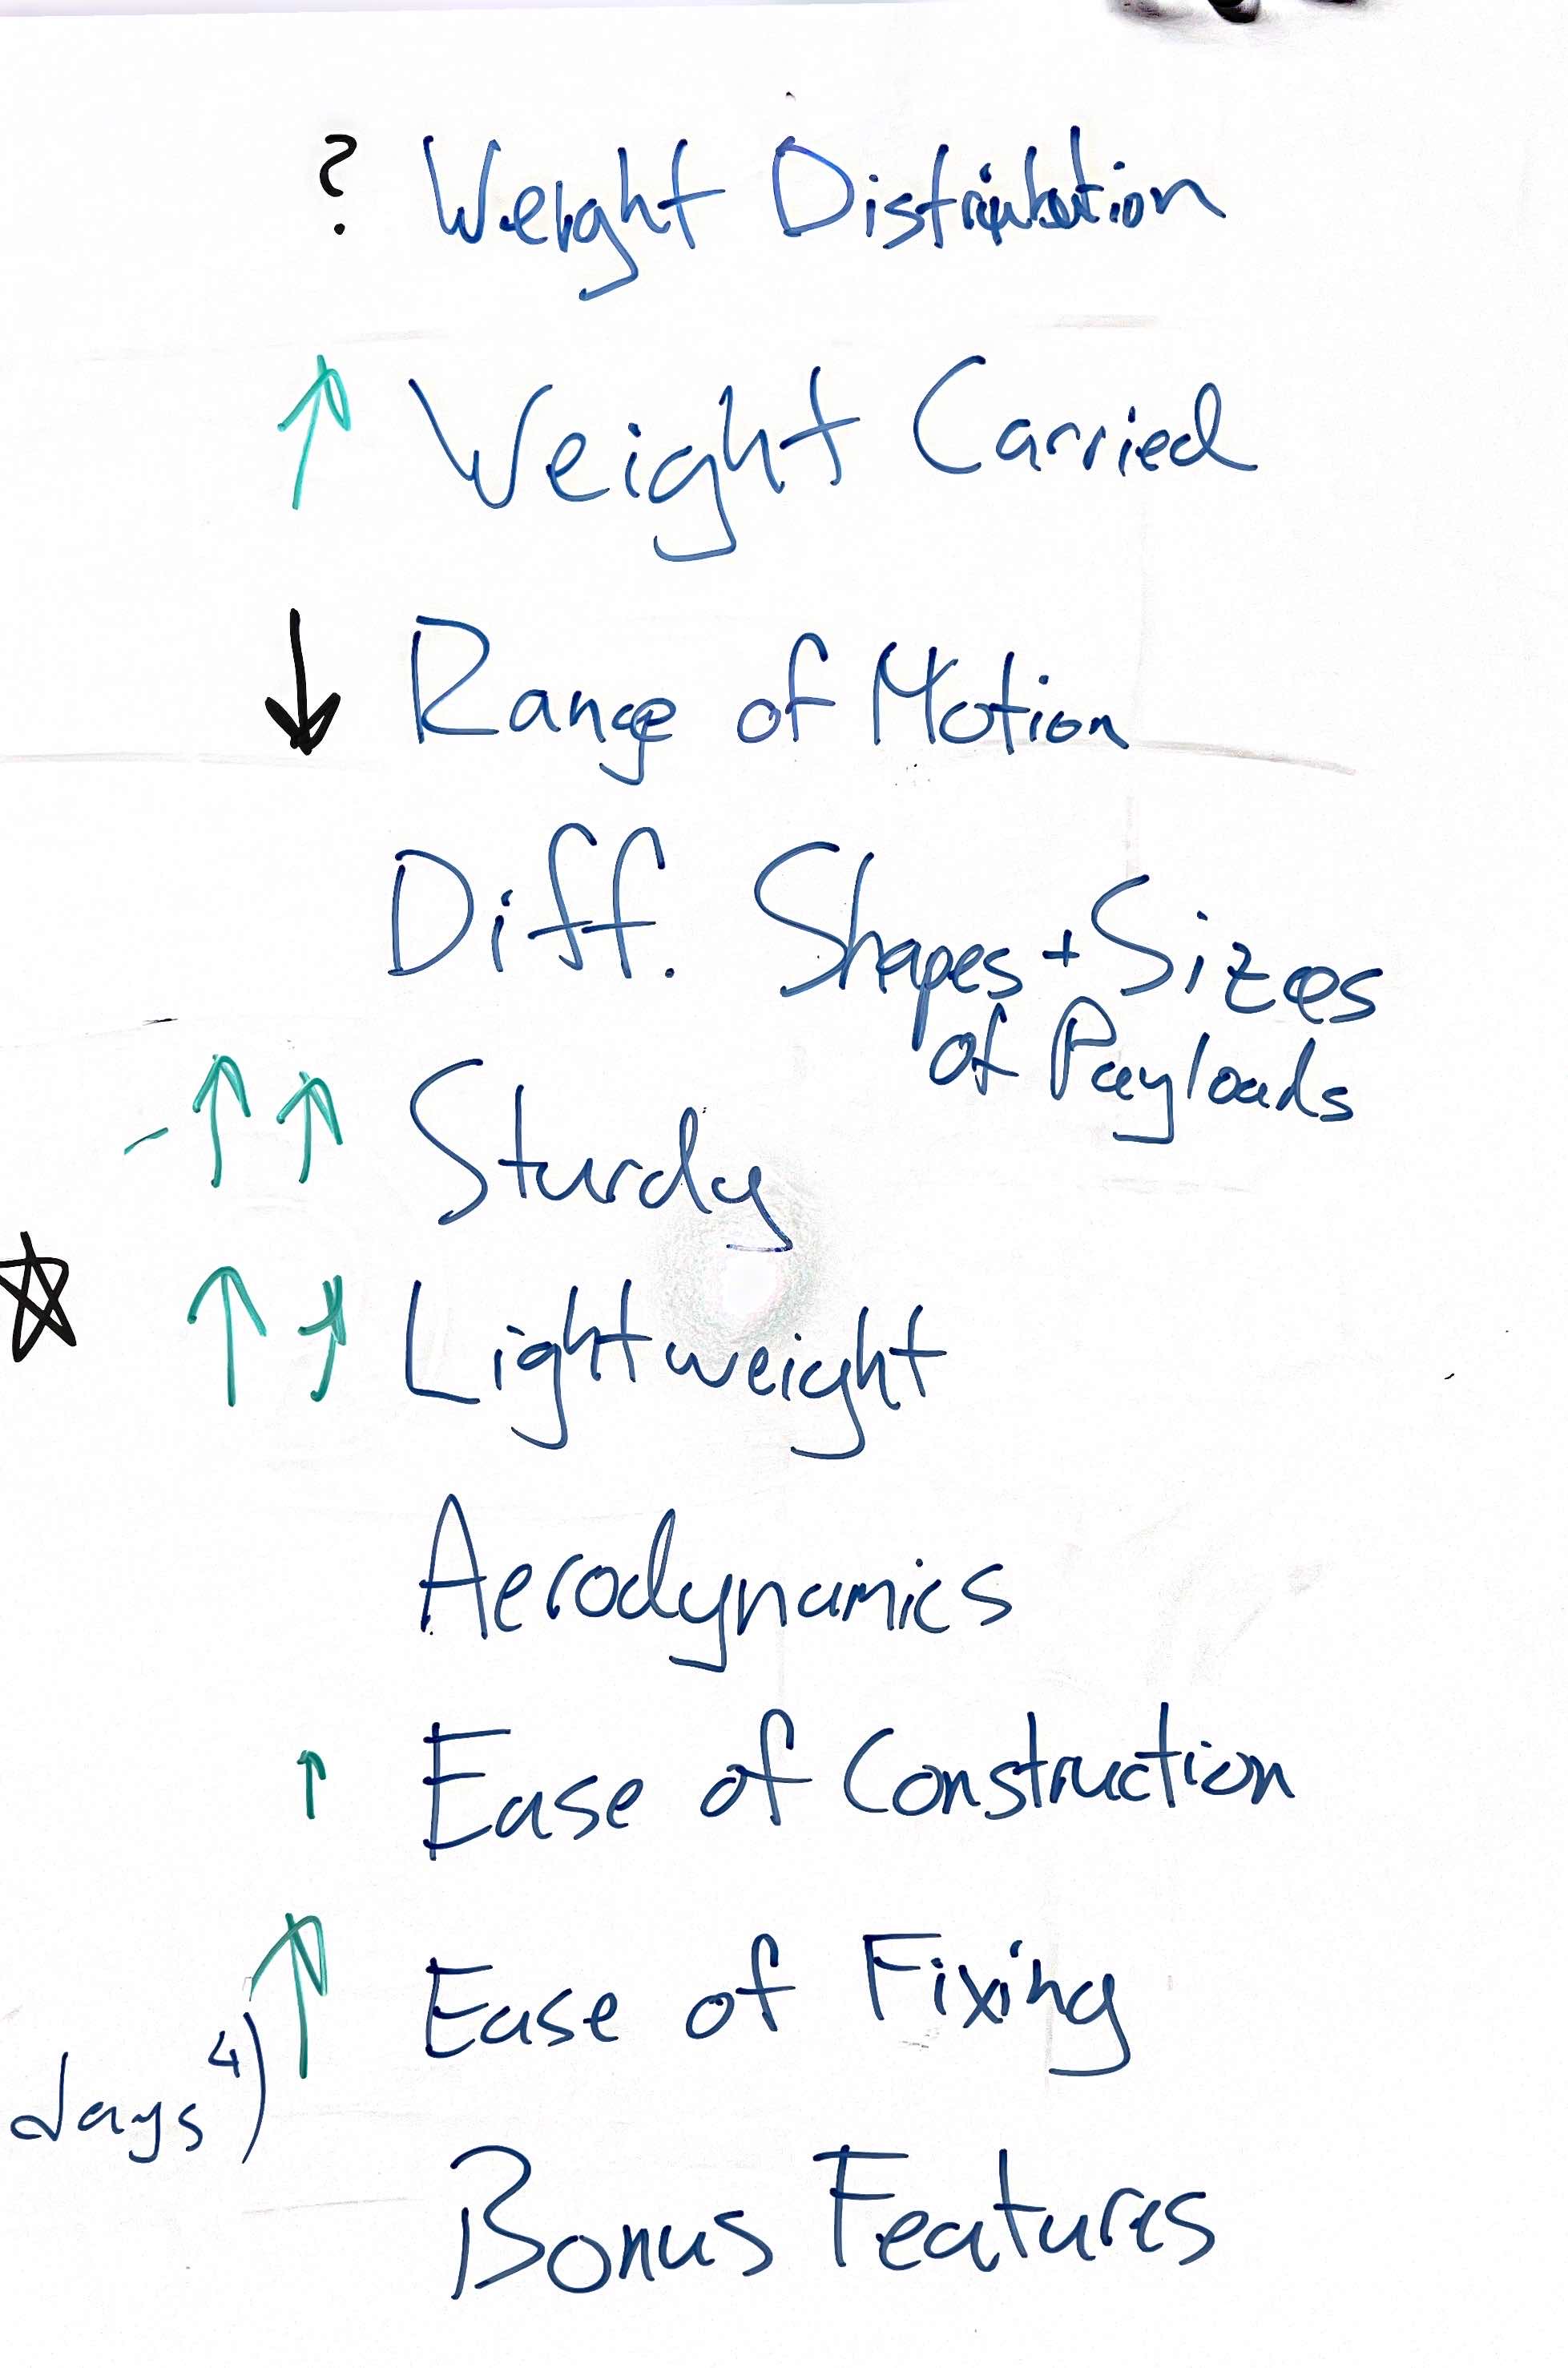 ? Weight Distribution
↑ Weight Carried
↓ Range of Motion
Diff. Shapes + Sizes
of Payloads
-↑↑ Sturdy
☆ ↑↑ Lightweight
Aerodynamics
↑ Ease of Construction
↑ Ease of Fixing
days 4)
Bonus Features